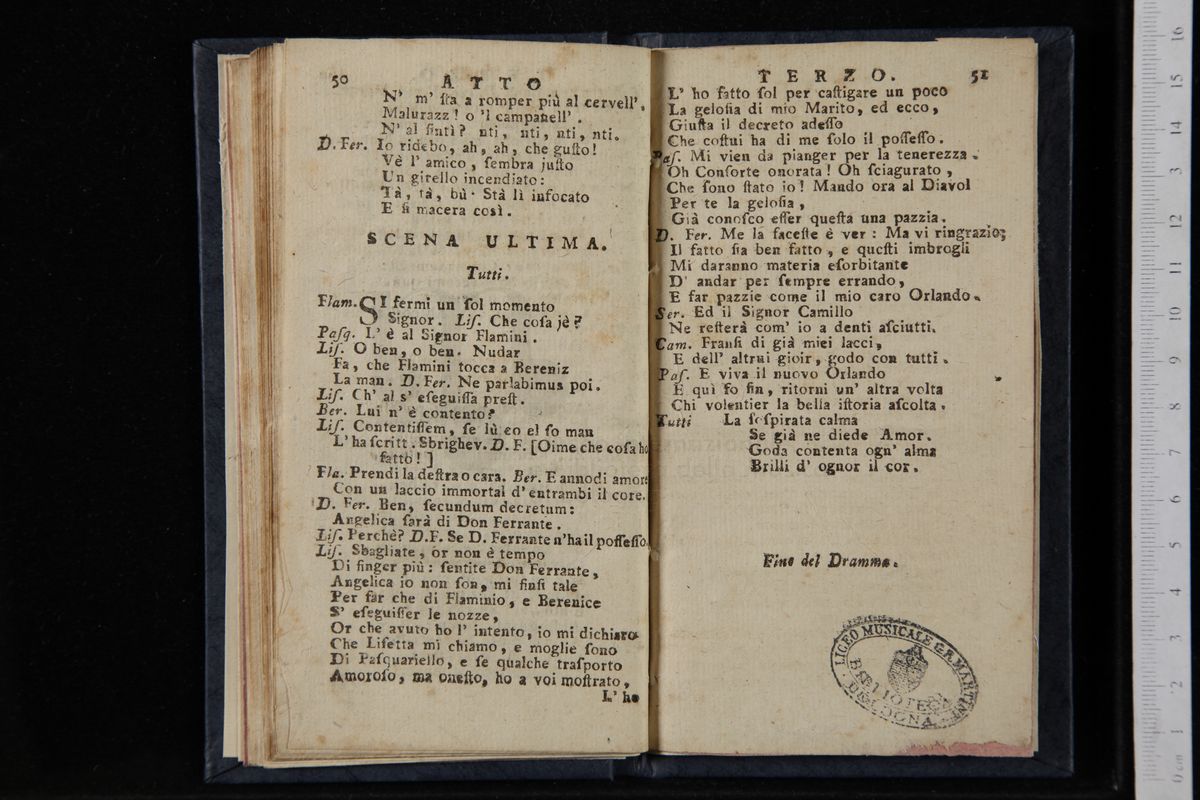 50 ATTO
N' m' ſta a romper più al cervell',
Malurazz! o 'l campanell'.
N' al ſintì? nti, nti, nti, nti.
D. Fer. Io ridebo, ah, ah, che guſto!
Vè l' amico, ſembra juſto
Un girello incendiato:
Tà, tà, bù. Stà lì infocato
E ſi macera così.
SCENA ULTIMA.
Tutti.
Flam. SI fermi un ſol momento
Signor. Liſ. Che coſa jè?
Paſq. L' è al Signor Flamini.
Liſ. O ben, o ben. Nudar
Fa, che Flamini tocca a Bereniz
La man. D. Fer. Ne parlabimus poi.
Liſ. Ch' al s' eſeguiſſa preſt.
Ber. Lui n' è contento?
Liſ. Contentiſſem, ſe lù co el ſo man
L' ha ſcritt. Sbrighev. D. F. [Oime che coſa ho
fatto!]
Fla. Prendi la deſtra o cara. Ber. E annodi amore
Con un laccio immortal d' entrambi il core.
D. Fer. Ben, ſecundum decretum:
Angelica ſarà di Don Ferrante.
Liſ. Perchè? D.F. Se D. Ferrante n'ha il poſſeſſo.
Liſ. Sbagliate, or non è tempo
Di finger più: ſentite Don Ferrante,
Angelica io non ſon, mi finſi tale
Per far che di Flaminio, e Berenice
S' eſeguiſſer le nozze,
Or che avuto ho l' intento, io mi dichiaro
Che Liſetta mi chiamo, e moglie ſono
Di Paſquariello, e ſe qualche traſporto
Amoroſo, ma oneſto, ho a voi moſtrato,
L' ho
TERZO. 51
L' ho fatto ſol per caſtigare un poco
La geloſia di mio Marito, ed ecco,
Giuſta il decreto adeſſo
Che coſtui ha di me ſolo il poſſeſſo.
Paſ. Mi vien da pianger per la tenerezza.
Oh Conſorte onorata! Oh ſciagurato,
Che ſono ſtato io! Mando ora al Diavol
Per te la geloſia,
Già conoſco eſſer queſta una pazzia.
D. Fer. Me la faceſte è ver: Ma vi ringrazio;
Il fatto ſia ben fatto, e queſti imbrogli
Mi daranno materia eſorbitante
D' andar per ſempre errando,
E far pazzie come il mio caro Orlando.
Ser. Ed il Signor Camillo
Ne reſterà com' io a denti aſciutti.
Cam. Franſi di già miei lacci,
E dell' altrui gioir, godo con tutti.
Paſ. E viva il nuovo Orlando
E quì fo fin, ritorni un' altra volta
Chi volentier la bella iſtoria aſcolta.
Tutti La ſoſpirata calma
Se già ne diede Amor.
Goda contenta ogn' alma
Brilli d' ognor il cor.
Fine del Dramma.
LICEO MUSICALE G.B. MARTINI
BIBLIOTECA
BOLOGNA
0 cm 1 2 3 4 5 6 7 8 9 10 11 12 13 14 15 16